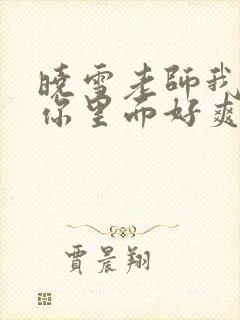 曉雪老師我
你里面好爽
賈晨翔